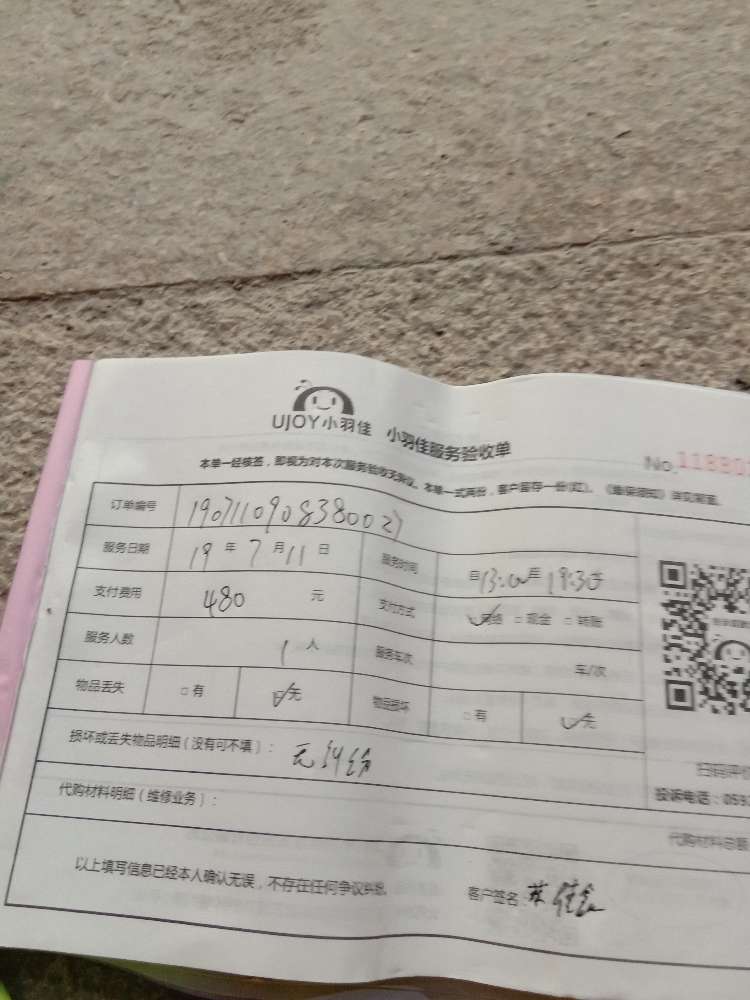 UJOY小羽佳 小羽佳服务验收单
No.11880
本单一经核签，即视为对本次服务验收无异议。本单一式两份，客户留存一份(红)。《维保须知》详见背面。
订单编号 19071109083800027
服务日期 19 年 7 月 11 日 服务时间 自13:00至 18:30止
支付费用 480 元 支付方式 网络 □ 现金 □ 转账
服务人数 1 人 服务车次 车/次
物品丢失 □ 有 无 物品损坏 □ 有 无
损坏或丢失物品明细（没有可不填）： 无
扫码评价
代购材料明细（维修业务）：
投诉电话：059
代购材料总额
以上填写信息已经本人确认无误，不存在任何争议纠纷 客户签名：